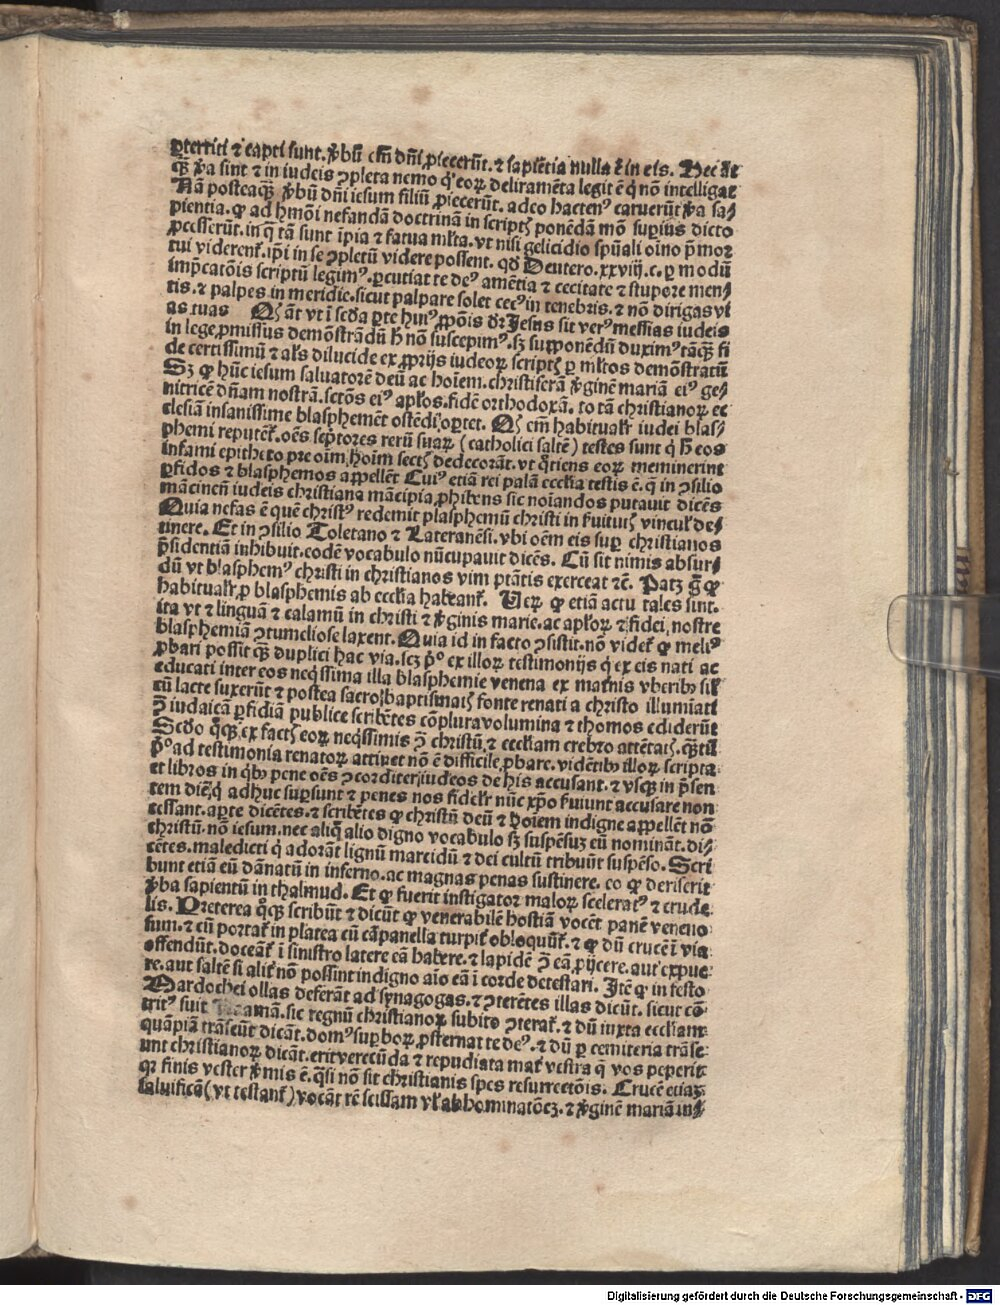 ꝑterriti ⁊ capti sunt. v̓bū em̄ dn̄i ꝓiecerūt. ⁊ sapiētia nulla ē in eis. Hec āt
qꝫ v̓a sint ⁊ in iudeis ꝯpleta nemo q̇ eoꝝ deliramēta legit ē q̇ nō intelligat
Nā posteaqꝫ v̓bū dn̄i iesum filiū ꝓiecerūt. adeo hacten⁹ caruerūt v̓a sa⸗
pientia. ꝙ ad hmōi nefandā doctrinā in scriptꝭ ponēdā mō suꝑius dicto
ꝓcesserūt. in q̄ tā sunt īpia ⁊ fatua ml̓ta. vt nisi gelicidio spūali oīno p̄mor
tui viderent̄. ip̄i in se ꝯpletū videre possent. qd̓ Deutero. xxviij. c. ꝑ modū
imp̄catōis scriptū legim⁹. ꝑcutiat te de⁹ amētia ⁊ cecitate ⁊ stupore men⸗
tis. ⁊ palpes in meridie. sicut palpare solet cec⁹ in tenebris. ⁊ nō dirigas vi
as tuas Qꝭ āt vt ī scd̓a ꝑte hui⁹ ꝓpōis dr̄ Jesus sit ver⁹ messias iudeis
in lege ꝓmissus demōstrādū h̓ nō suscepim⁹. sꝫ supponēdū duxim⁹ tāqꝫ fi
de certissimū ⁊ al̓s dilucide ex ꝓprijs iudeoꝝ scriptꝭ ꝑ ml̓tos demōstratū
Sꝫ ꝙ hūc iesum saluatorē deū ac hoīem. christiferā v̓ginē mariā ei⁹ ge⸗
nitricē dn̄am nostrā. sctōs ei⁹ apl̓os. fidē orthodoxā. totā christianoꝝ ec
clesiā insanissime blasphemēt ostēdi oꝑtet. Qꝭ em̄ habitualr̄ iudei blas⸗
phemi reputēt̄. oēs sc̓ptores rerū suaꝝ (catholici saltē) testes sunt q̇ h̓ eos
infami epitheto pre oīm hoīm sectꝭ dedecorāt. vt q̄tiens eoꝝ meminerint
ꝑfidos ⁊ blasphemos appellēt Cui⁹ etiā rei palā eccl̓ia testis ē. q̄ in ꝯsilio
mācinen̄ iudeis christiana mācipia ꝓhibens sic noīandos putauit dicēs
Quia nefas ē quē christ⁹ redemit plasphemū christi in fuituꝭ vincul̓ de⸗
tinere. Et in ꝯsilio Toletano ⁊ Lateranēsi. vbi oēm eis suꝑ christianos
p̄sidentiā inhibuit. eodē vocabulo nūcupauit dicēs. Cū sit nimis absur⸗
dū vt blasphem⁹ christi in christianos vim ptātis exerceat ⁊c̄. Patꝫ g̓ ꝙ
habitualr̄ ꝑ blasphemis ab eccl̓ia habeant̄. Ueꝝ ꝙ etiā actu tales sunt.
ita vt ⁊ linguā ⁊ calamū in christi ⁊ v̓ginis marie. ac apl̓oꝝ ⁊ fidei nostre
blasphemiā ꝯtumeliose laxent. Quia id in facto ꝯsistit. nō videt̄ ꝙ meli⁹
ꝓbari possit qꝫ duplici hac via. scꝫ p̄⁰ ex illoꝝ testimonijs q̇ ex eis nati ac
educati inter eos neq̇ssima illa blasphemie venena ex mat̓nis vberibꝫ sil̓
cū lacte suxerūt ⁊ postea sacroꝫ baptismatꝭ fonte renati a christo illumiati
ꝯ̄ iudaicā ꝑfidiā publice scribētes cōplura volumina ⁊ thomos ediderūt
Scd̓o q̇qꝫ ex factꝭ eoꝝ neq̇ssimis ꝯ̄ christū ⁊ eccl̓iam crebro attētatꝭ. qꝫtū
p̄⁰ ad testimonia renatoꝝ attinet nō ē difficile ꝓbare. vidētibꝫ illoꝝ scripta
et libros in q̇bꝫ pene oēs ꝯcorditer iudeos de his accusant. ⁊ vsqꝫ in p̄sen
tem diē. q̇ adhuc suꝑsunt ⁊ penes nos fidelr̄ nūc xp̄o fuiunt accusare non
cessant. aꝑte dicētes. ⁊ scribētes ꝙ christū deū ⁊ hoīem indigne appellēt nō
christū. nō iesum. nec aliq̇ alio digno vocabulo sꝫ suspēsuꝫ eū nominant. di⸗
cētes. maledicti q̇ adorāt lignū marcidū ⁊ dei cultū tribuūt suspēso. Scri
bunt etiā eū dānatū in inferno. ac magnas penas sustinere. eo ꝙ deriserit
v̓ba sapientū in thalmud. Et ꝙ fuerit instigator maloꝝ scelerat⁹ ⁊ crude
lis. Preterea q̇qꝫ scribūt ⁊ dicūt ꝙ venerabilē hostiā vocēt panē veneno
sum. ⁊ cū portat̄ in platea cū cāpanella turpit̓ obloquūt̄. ⁊ ꝙ dū crucē ī via
offendūt. doceāt̄ ī sinistro latere eā habere. ⁊ lapidē ꝯ̄ eā ꝓijcere. aut expue
re. aut saltē si alit̓ nō possint indigno aīo eā ī corde detestari. Itē ꝙ in festo
Mardochei ollas deferāt ad synagogas. ⁊ ꝯterētes illas dicūt. sicut cō⸗
trit⁹ fuit amā. sic regnū christianoꝝ subito ꝯterat̄. ⁊ dū iuxta eccl̓iam
quāpiā trāseūt dicāt. dom⁹ suꝑboꝝ ꝓsternat te de⁹. ⁊ dū ꝑ cemiteria trāse⸗
unt christianoꝝ dicāt. erit verecūda ⁊ repudiata mat̓ vestra q̄ vos peperit
qꝛ finis vester v̓mis ē. q̄si nō sit christianis spes resurrectōis. Crucē etiaꝫ
saluificā (vt testant̄) vocāt rē scissam vl̓ abhominatōeꝫ. ⁊ v̓ginē mariā in⸗
Digitalisierung gefördert durch die Deutsche Forschungsgemeinschaft - DFG